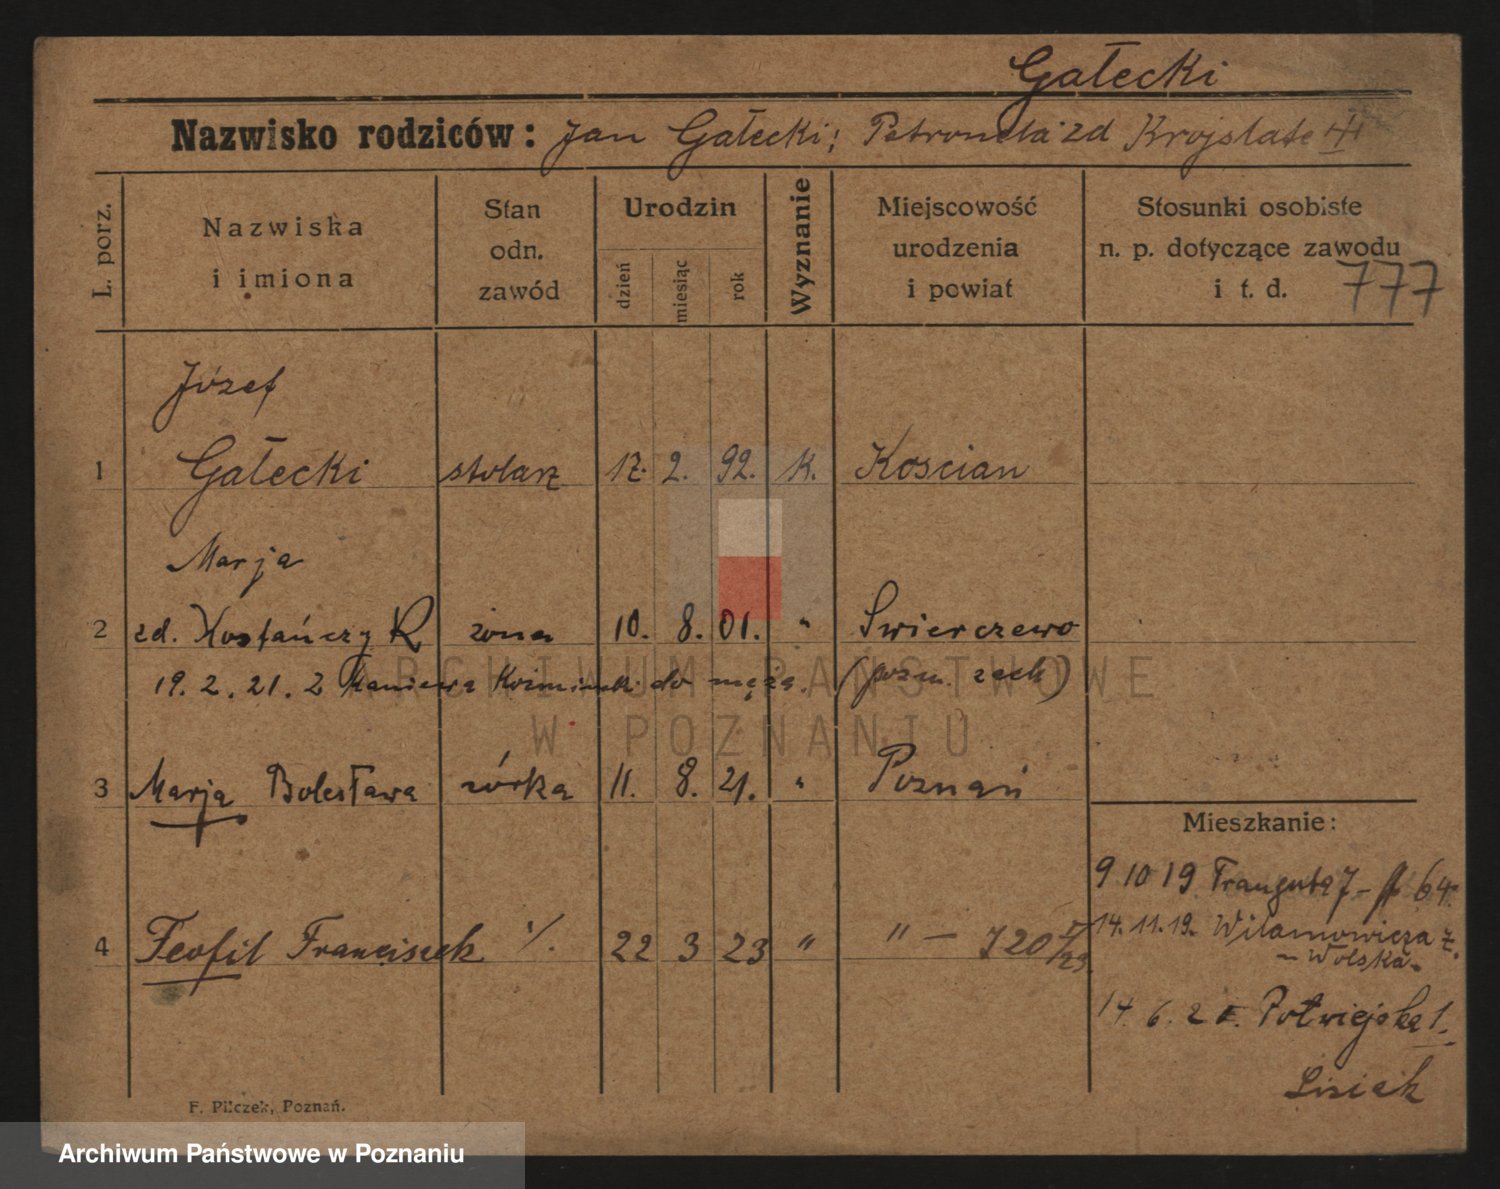 Gałecki
Nazwisko rodziców: Jan Gałecki; Petronela zd
L. porz.
Nazwiska i imiona
Stan odn. zawód
Urodzin
dzień miesiąc rok
Wyznanie
Miejscowość urodzenia i powiat
Stosunki osobiste n. p. dotyczące zawodu i t. d.
777
Józef
1 Gałecki stolarz 17. 2. 92. K. Koscian
Marja
2 zd. żona 10. 8. 01. " Swierczewo
19. 2. 21. Z do męża. (pozn. zach)
3 Marja Bolesława córka 11. 8. 21. " Poznań
Mieszkanie:
9 10 19 64
4 Teofil Franciszek 22 3 23 " " — 720
14. 11. 19.
Wolska
14. 6. 21. Półwiejska 1.
Lisiak
F. Pilczek, Poznań.
ARCHIWUM PAŃSTWOWE
W POZNANIU
Archiwum Państwowe w Poznaniu